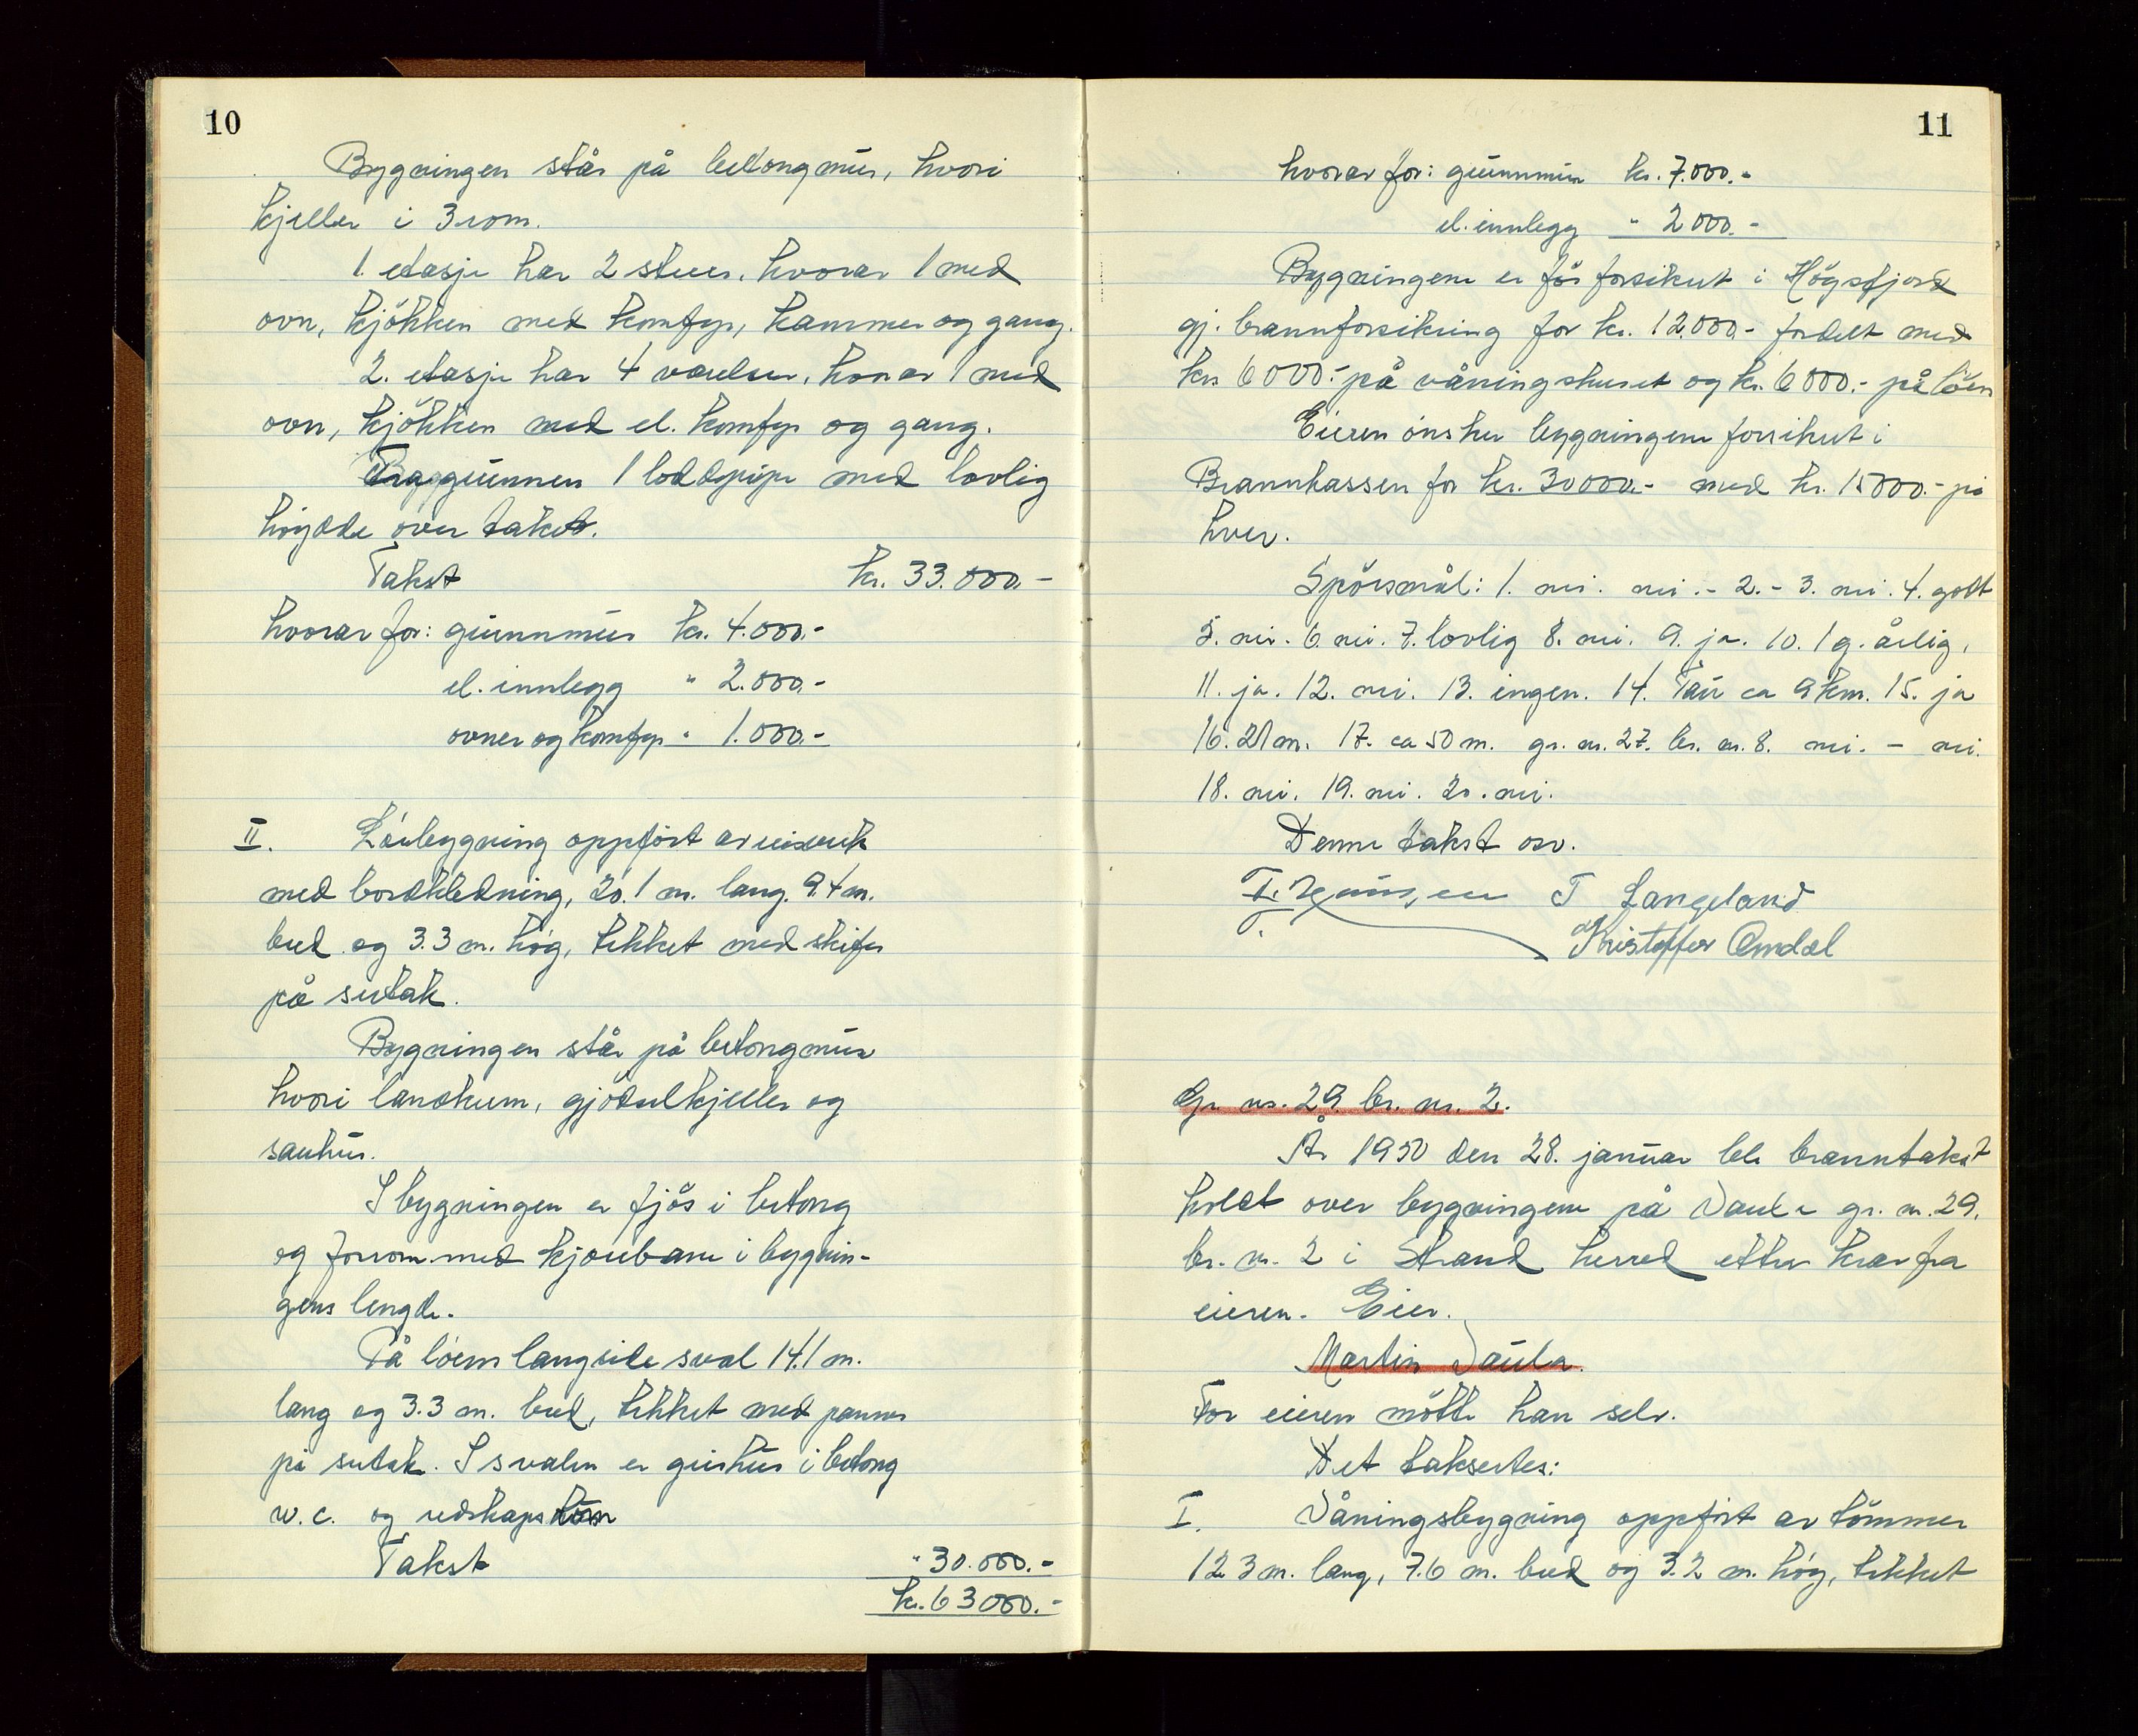 10
Bygningen står på betongmur, hvori
kjeller i 3 rom.
1. etasje har 2 stuer, hvorav 1 med
ovn, kjökken med komfyr, kammer og gang.
2. etasje har 4 værelser, hvorav 1 med
ovn, kjökken med el. komfyr og gang.
1 loddpipe med lovlig
höyde over taket.
Takst kr. 33.000.-
hvorav for: grunnmur kr. 4.000.-
el. innlegg " 2.000.-
ovner og komfyr " 1.000.-
II. Löebygning oppfört av reisverk
med bordkledning, 20.1 m. lang, 9.4 m.
bred og 3.3 m. hög, tekket med skifer
på sutak.
Bygningen står på betongmur
hvori landkum, gjödselkjeller og
sauhus.
I bygningen er fjös i betong
og forrom med kjörebane i bygnin-
gens lengde.
På löens langside sval 14.1 m.
lang og 3.3 m. bred, tekket med panner
på sutak. I svalen er grishus i betong
w.c. og redskaps
Takst " 30.000.-
kr. 63000.-
11
hvorav for: grunnmur kr. 7.000.-
el. innlegg " 2000.-
Bygningene er för forsikret i Högsfjord
gj. brannforsikring for kr. 12.000.- fordelt med
kr. 6000.- på våningshuset og kr. 6000.- på löen
Eieren önsker bygningene forsikret i
Brannkassen for kr. 30000.- med kr. 15000.- på
hver.
Spörsmål: 1. nei. nei. - 2. - 3. nei. 4. godt
5. nei. 6. nei. 7. lovlig 8. nei. 9. ja. 10. 1 g. årlig,
11. ja. 12. nei. 13. ingen. 14. Tau ca 9 km. 15. ja
16. 21 m. 17. ca 50 m. gr. nr. 27. br. nr. 8. nei. - nei.
18. nei. 19. nei. 20. nei.
Denne takst osv.
T. Langeland
Kristoffer Omdal
Gr. nr. 29. br. nr. 2.
År 1950 den 28. januar ble branntakst
holdt over bygningene på Vaula gr. nr. 29.
br. nr. 2 i Strand herred etter krav fra
eieren. Eier.
Martin Vaula.
For eieren mötte han selv.
Det taksertes:
I. Våningsbygning oppfört av tömmer
12.3 m. lang, 7.6 m. bred og 3.2 m. hög, tekket